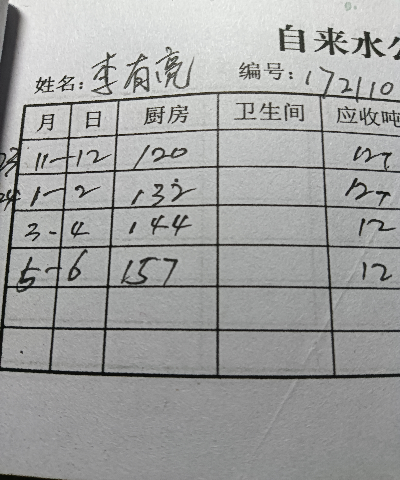 自来水公
姓名: 李有亮 编号: 172110
月 日 厨房 卫生间 应收吨
23 11-12 120 12T
24 1-2 132 12T
3-4 144 12
5-6 157 12